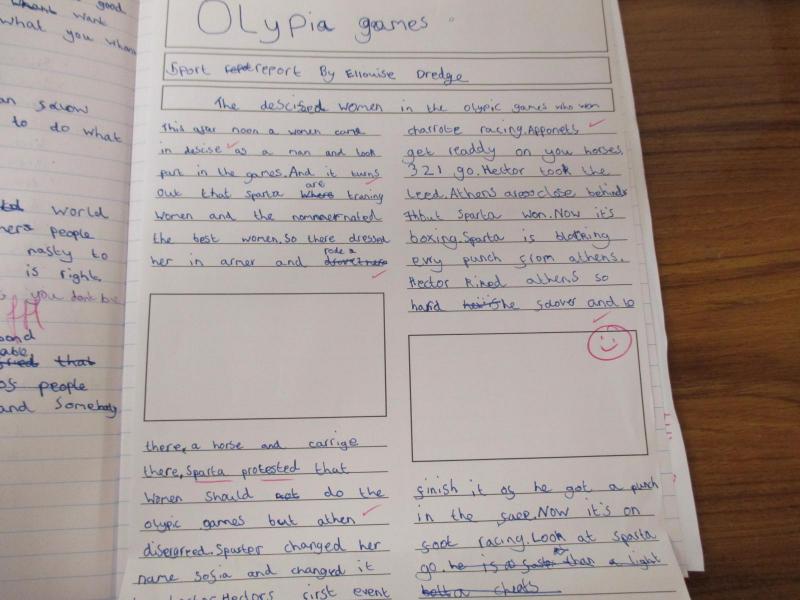 good
want want
what you whant
an savow
to do what
world
people
nasty to
is right
you dont be
able
that
of people
and somebody
OLypia games
Sport report By Ellouise Dredge
The descised women in the olypic games who won
This after noon a women came
in descise as a man and took
part in the games. And it turns
out that sparta are traning
women and the nommernated
the best women. So there dressed
her in armer and rode a
there, a horse and carrige
there, Sparta protested that
women should not do the
olypic games but athen
diserarred. Spaster changed her
name Sosia and changed it
Hectors first event
charrotte racing. Apponets
get readdy on you horses.
3 2 1 go. Hector took the
leed. Athens aros close behinds
but Sparta won. Now it's
boxing. Sparta is blocking
evry punch from athens.
Hector Kiked athens so
hard he saover and to
finish it of he got a punch
in the face. Now it's on
foot racing. Look at Sparta
go. he is faster than a light
a cheata